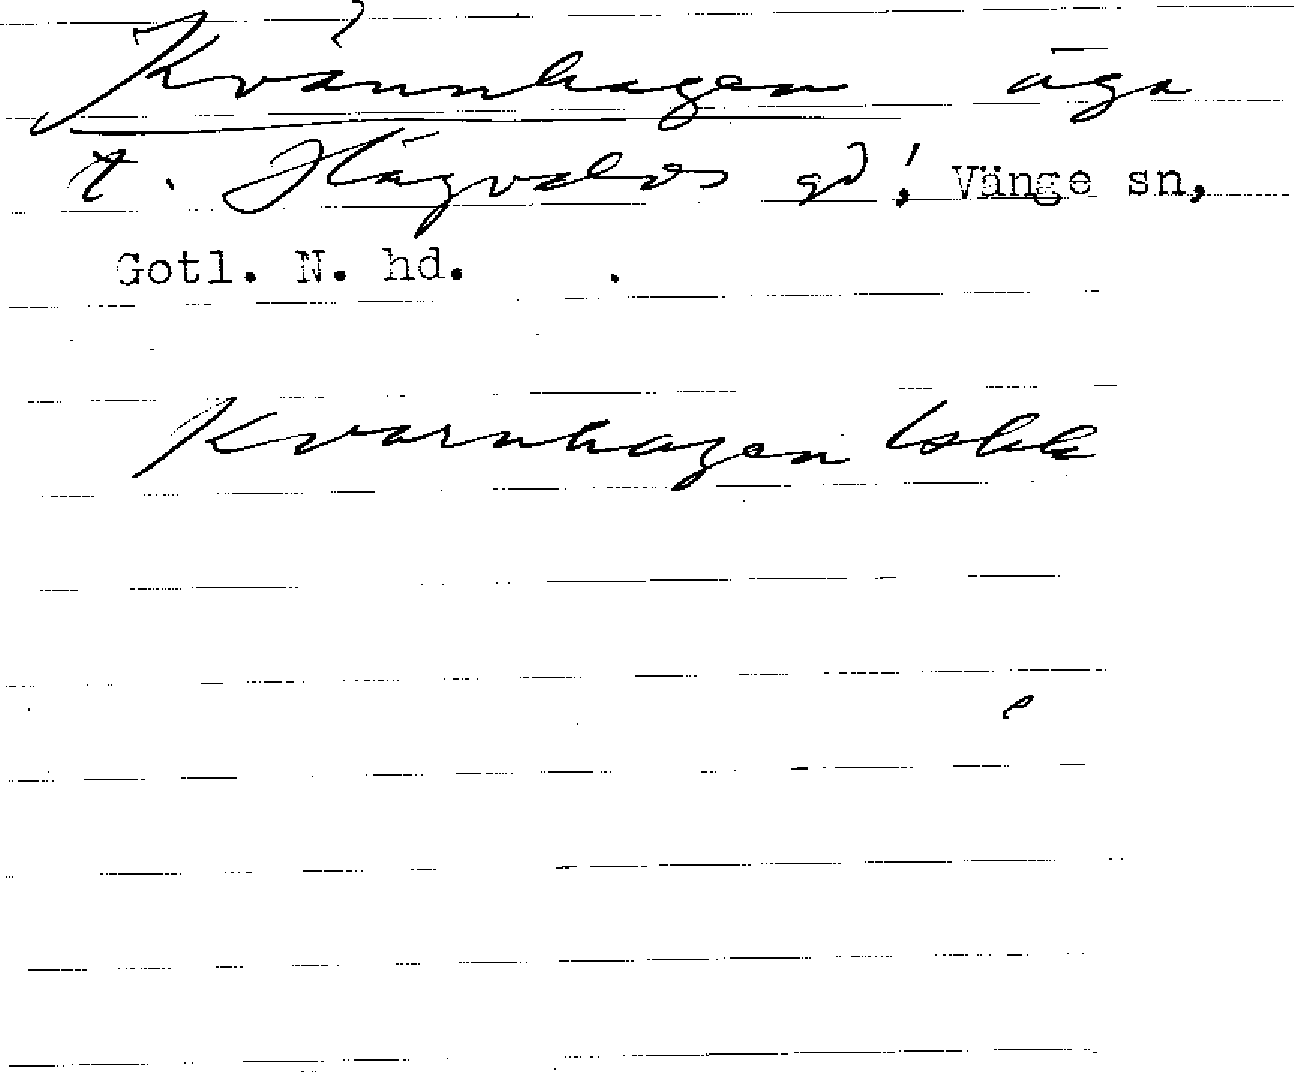 Kvännhagen äga
t. Hägvalds gd!, Vänge sn,
Gotl. N. hd.
Kvarnhagen Lskk